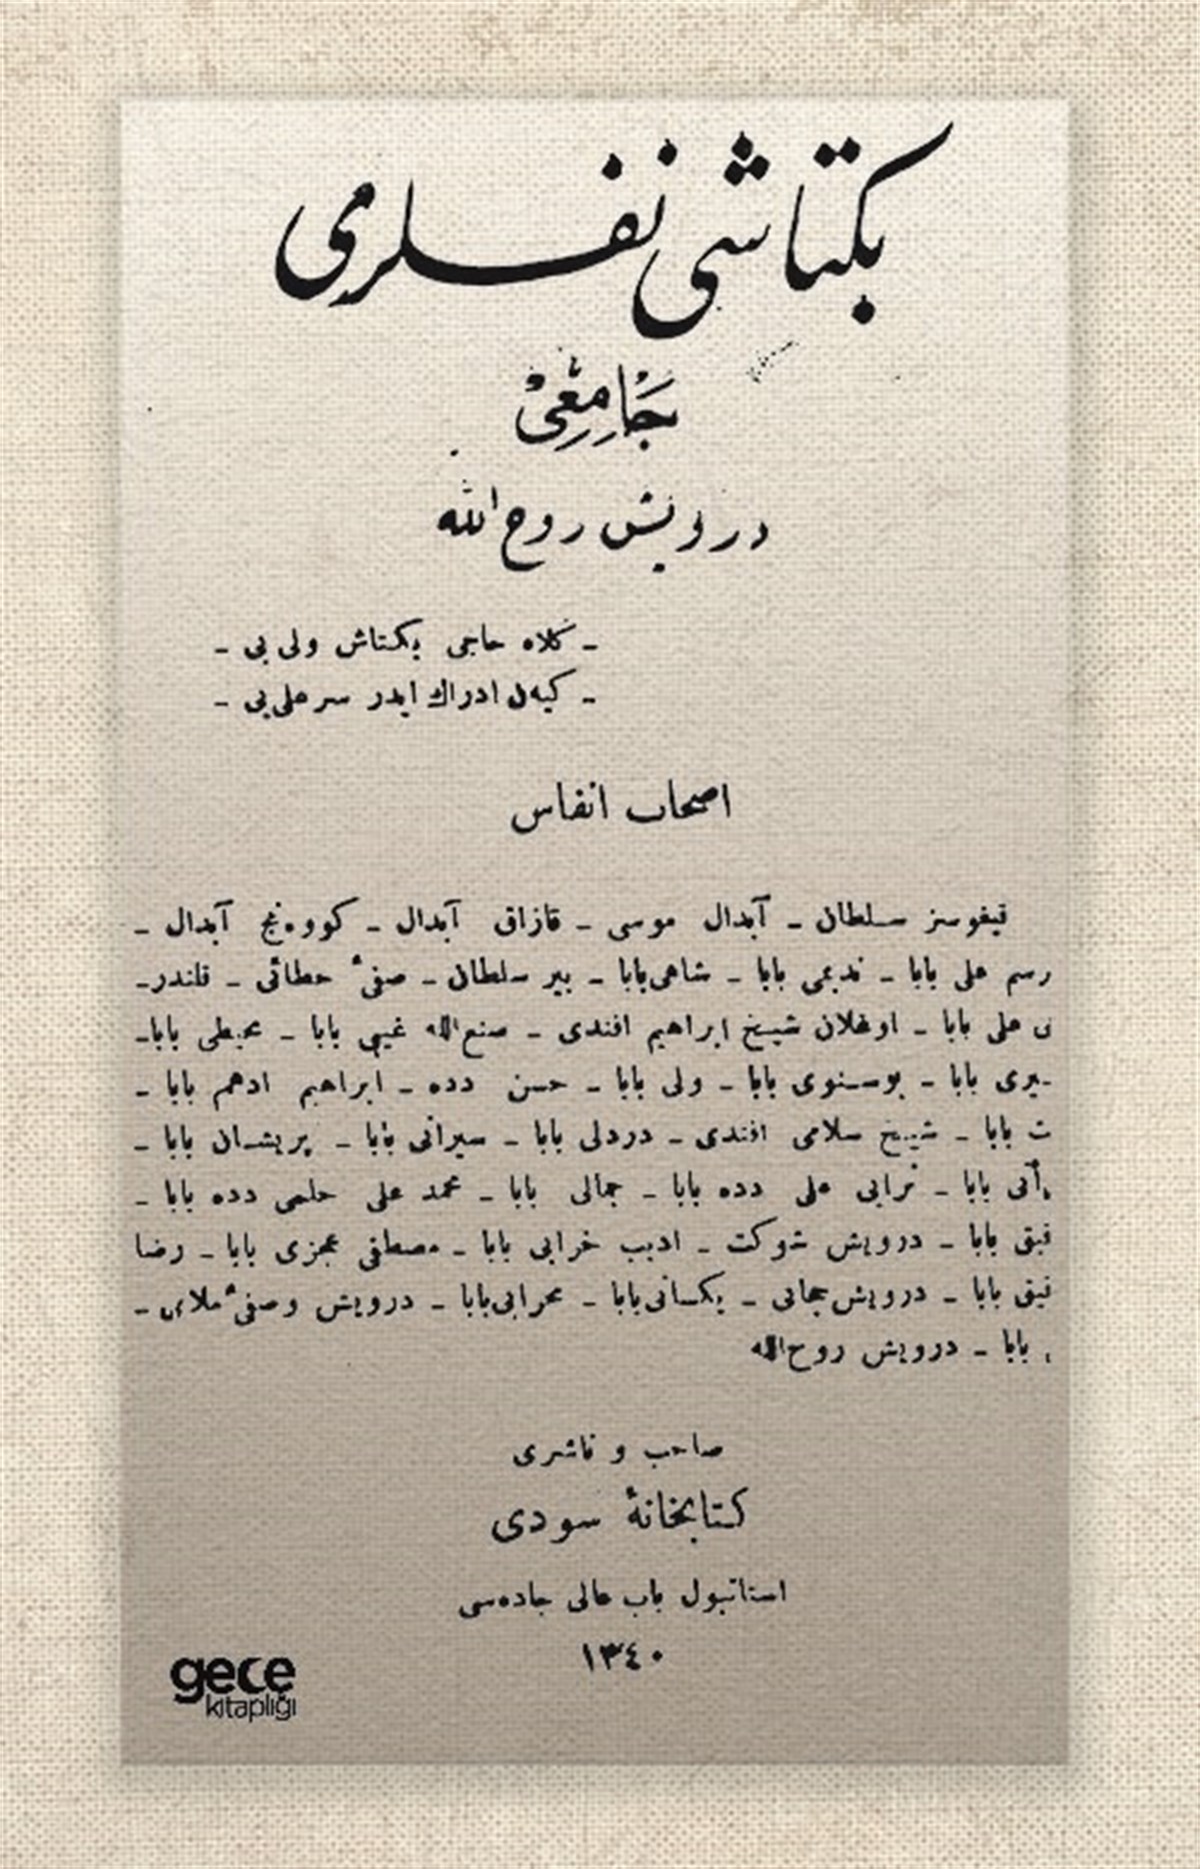 بكتاشى نفسلرى
جَامِعِى
درويش روح الله
ـ كلاه حاجى بكتاش ولى بى ـ
ـ كيه‌ن ادراك ايدر سر على بى ـ
اصحاب انفاس
قيغوسز سلطان ـ آبدال موسى ـ قازاق آبدال ـ كووه‌نج آبدال ـ
رسم على بابا ـ نديمى بابا ـ شاهى بابا ـ پير سلطان ـ صفىٔ خطائى ـ قلندر ـ
على بابا ـ اوغلان شيخ ابراهيم افندى ـ صنع الله غيبى بابا ـ محيطى بابا ـ
ـيرى بابا ـ بوسنوى بابا ـ ولى بابا ـ حسن دده ـ ابراهيم ادهم بابا ـ
ت بابا ـ شيخ سلامى افندى ـ دردلى بابا ـ سيرانى بابا ـ پريشان بابا ـ
أتى بابا ـ ترابى على دده بابا ـ جمالى بابا ـ محمد على حلمى دده بابا ـ
فيق بابا ـ درويش شوكت ـ اديب خرابى بابا ـ مصطفى عجزى بابا ـ رضا
فيق بابا ـ درويش جهانى ـ يكسانى بابا ـ محرابى بابا ـ درويش وصفىٔ ملاى ـ
بابا ـ درويش روح الله
صاحب و ناشرى
كتابخانهٔ سودى
استانبول باب عالى جاده‌سى
١٣٤٠
gece
kitaplığı